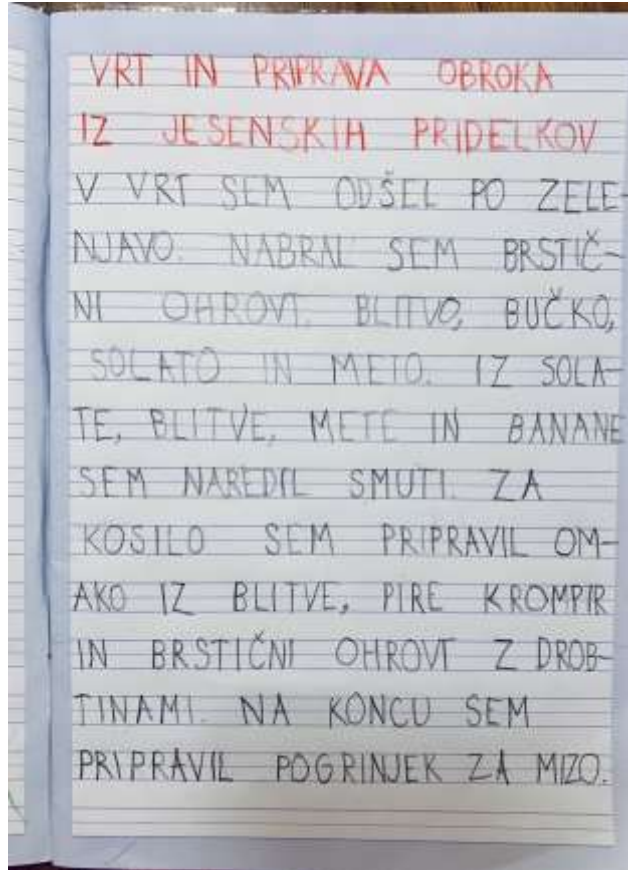 VRT IN PRIPRAVA OBROKA
IZ JESENSKIH PRIDELKOV
V VRT SEM ODŠEL PO ZELE-
NJAVO. NABRAL SEM BRSTIČ-
NI OHROVT, BLITVO, BUČKO,
SOLATO IN METO. IZ SOLA-
TE, BLITVE, METE IN BANANE
SEM NAREDIL SMUTI. ZA
KOSILO SEM PRIPRAVIL OM-
AKO IZ BLITVE, PIRE KROMPIR
IN BRSTIČNI OHROVT Z DROB-
TINAMI. NA KONCU SEM
PRIPRAVIL POGRINJEK ZA MIZO.